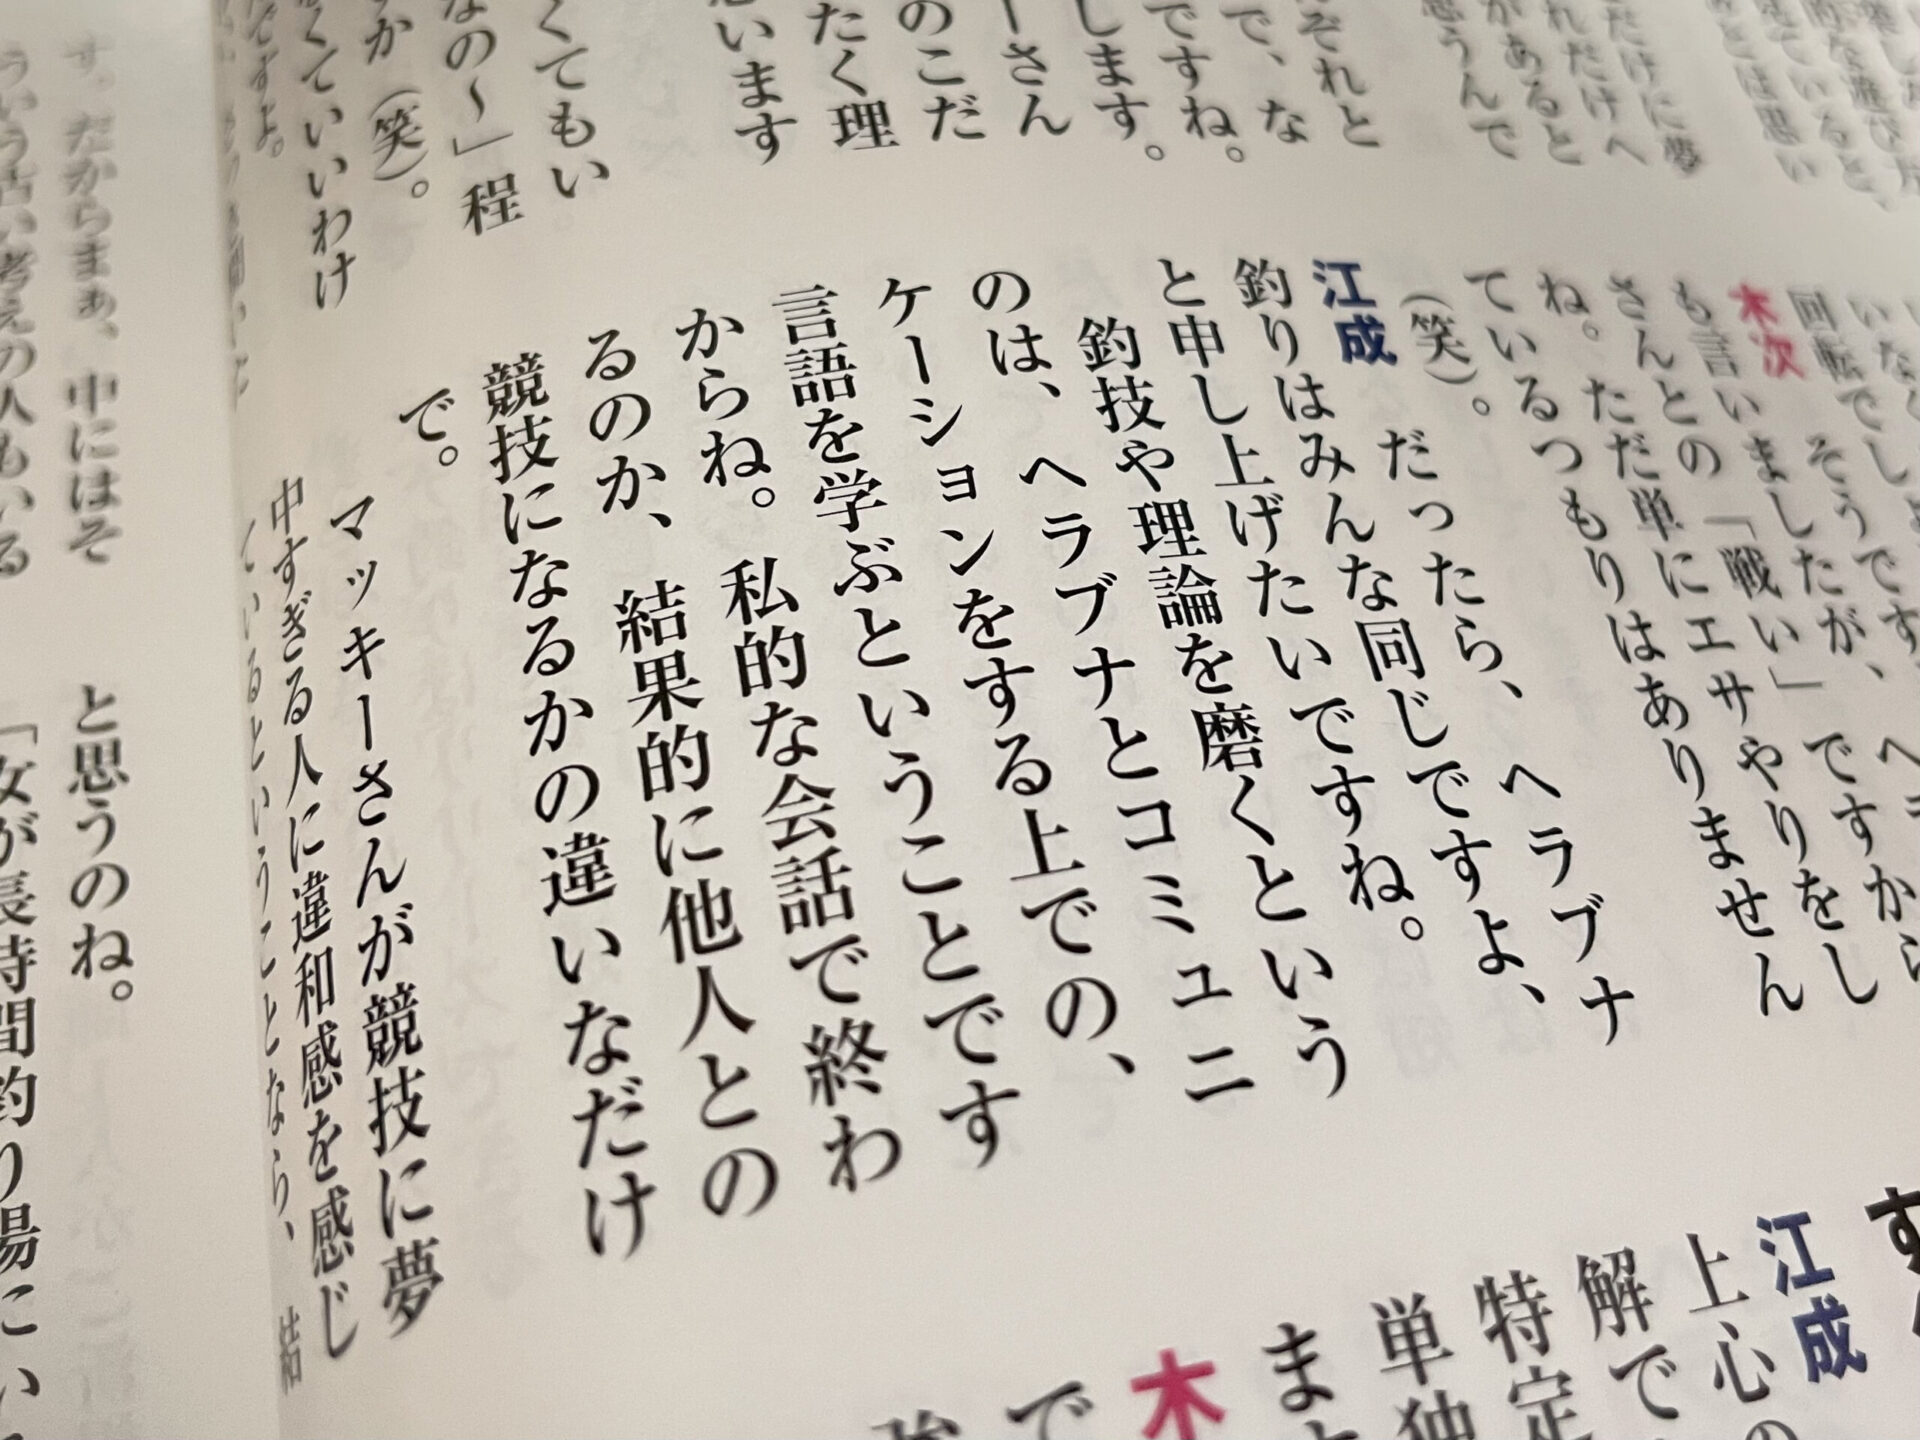 ぞれと
で、な
ですね。
します。
ーさん
のこだ
たく理
思います
くてもい
なの〜」程
か（笑）。
くていいわけ
ですよ。
いなく
回転でし
木次　そうです。ヘラ
も言いましたが、
さんとの「戦い」ですから
ね。ただ単にエサやりをし
ているつもりはありません
（笑）。
江成　だったら、ヘラブナ
釣りはみんな同じですよ、
と申し上げたいですね。
釣技や理論を磨くという
のは、ヘラブナとコミュニ
ケーションをする上での、
言語を学ぶということです
からね。私的な会話で終わ
るのか、結果的に他人との
競技になるかの違いなだけ
で。
マッキーさんが競技に夢
中すぎる人に違和感を感じ
ているということなら、結
江成
上心の
解で
特定
単独
また
木
で
す。だからまぁ、中にはそ
ういう古い考えの人もいる
と思うのね。
「女が長時間釣り場にい